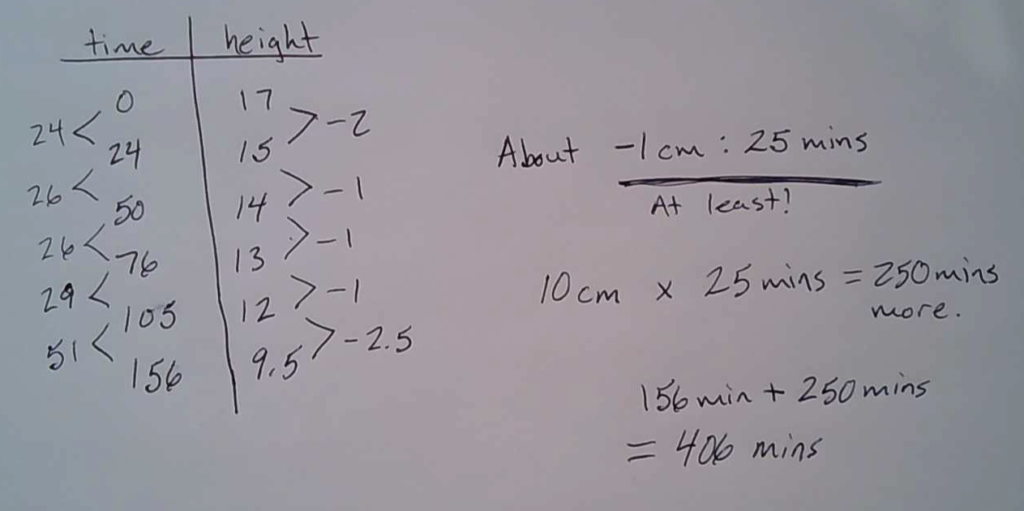 time height
0 17
24 < > -2
24 15
26 < > -1
50 14
26 < > -1
76 13
29 < > -1
105 12
51 < > -2.5
156 9.5
About -1 cm : 25 mins
At least!
10 cm x 25 mins = 250 mins
more.
156 min + 250 mins
= 406 mins